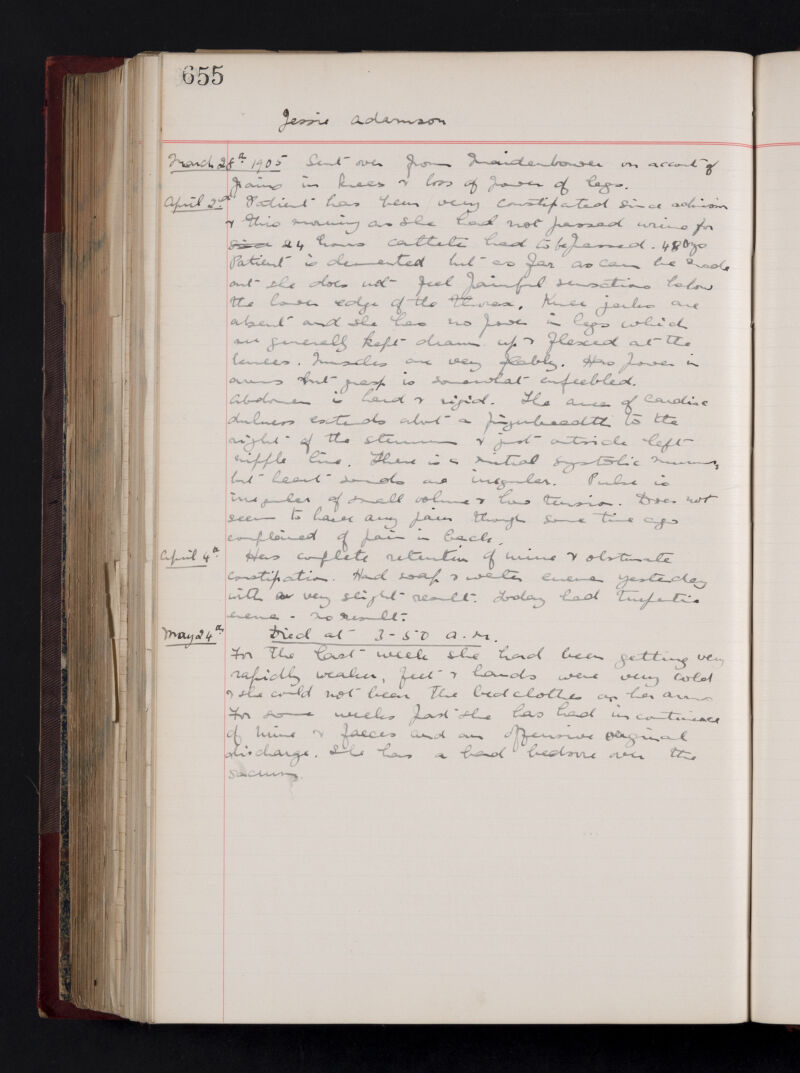 655
Jessie Adamson
March 28th 1905 Sent over from Maidenbower on account of
pains in knees & loss of power of legs.
April 2nd Patient has been very constipated since admission
& this morning as she had not passed urine for
since 24 hours catheter had to be passed. 48 ozs
Patient is demented but as far as can be made
out she does not feel painful sensations below
the lower edge of the thorax. Knee jerks are
absent and she has no power in legs which
are generally kept drawn up & flexed at the
knees. Muscles are very flabby. Has power in
arms but grasp is somewhat enfeebled.
Abdomen is hard & rigid. The area of cardiac
dulness extends abut a fingerbreadth to the
right of the sternum & just outside left
nipple line. There is a mitral systolic murmur,
but heart sounds are irregular. Pulse is
irregular of small volume & low tension. Does not
seem to have any pain though some time ago
complained of pain in back.
April 4th Has complete retention of urine & obstinate
constipation. Had soap & water enema yesterday
with very slight result. Today had turpentine
enema - no result.
May 24th Died at 3-50 a.m.
For the last week she had been getting very
rapidly weaker, feet & hands were very cold
& she could not bear the bedclothes on her arms
For some weeks past she has had incontinence
of urine & faeces and an offensive vaginal
discharge. She has a bad bedsore over the
sacrum.